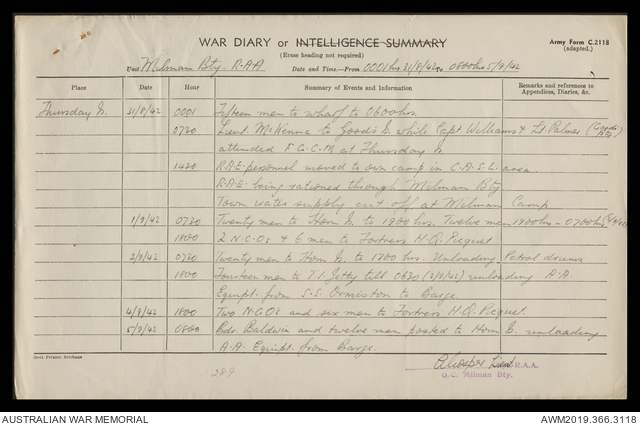 WAR DIARY or INTELLIGENCE SUMMARY
(Erase heading not required)
Army Form C.2118
(adapted.)
Unit Milman Bty. R.A.A. Date and Time—From 0001 hrs 31/8/42 to 0800 hrs 5/9/42
Place Date Hour Summary of Events and Information Remarks and references to Appendices, Diaries, &c.
Thursday Is. 31/8/42 0001 Fifteen men to wharf to 0600 hrs.
0730 Lieut. McKenna to Goods Is. while Capt Williams & Lt. Palmer (Goods Bty)
attended F.G.C.M. at Thursday Is.
1430 R.A.E. personnel moved to own camp in C.A.S.L. area.
R.A.E. being rationed through Milman Bty
Town water supply cut off at Milman Camp
1/9/42 0730 Twenty men to Horn Is. to 1900 hrs. Twelve men 1900 hrs - 0700 hrs
1800 2 N.C.Os & 6 men to Fortress H.Q. Picquet
2/9/42 0730 Twenty men to Horn Is. to 1700 hrs. Unloading Petrol drums
1800 Fourteen men to T.I. Jetty till 0630 (3/9/42) unloading A.A.
Equipt. from S.S. Ormiston to Barge.
4/9/42 1800 Two N.C.Os and six men to Fortress H.Q. Picquet.
5/9/42 0800 Bdr. Baldwin and twelve men posted to Horn Is. unloading
A.A. Equipt. from Barge.
Lieut R.A.A.
O.C. Milman Bty.
289
AUSTRALIAN WAR MEMORIAL
AWM2019.366.3118